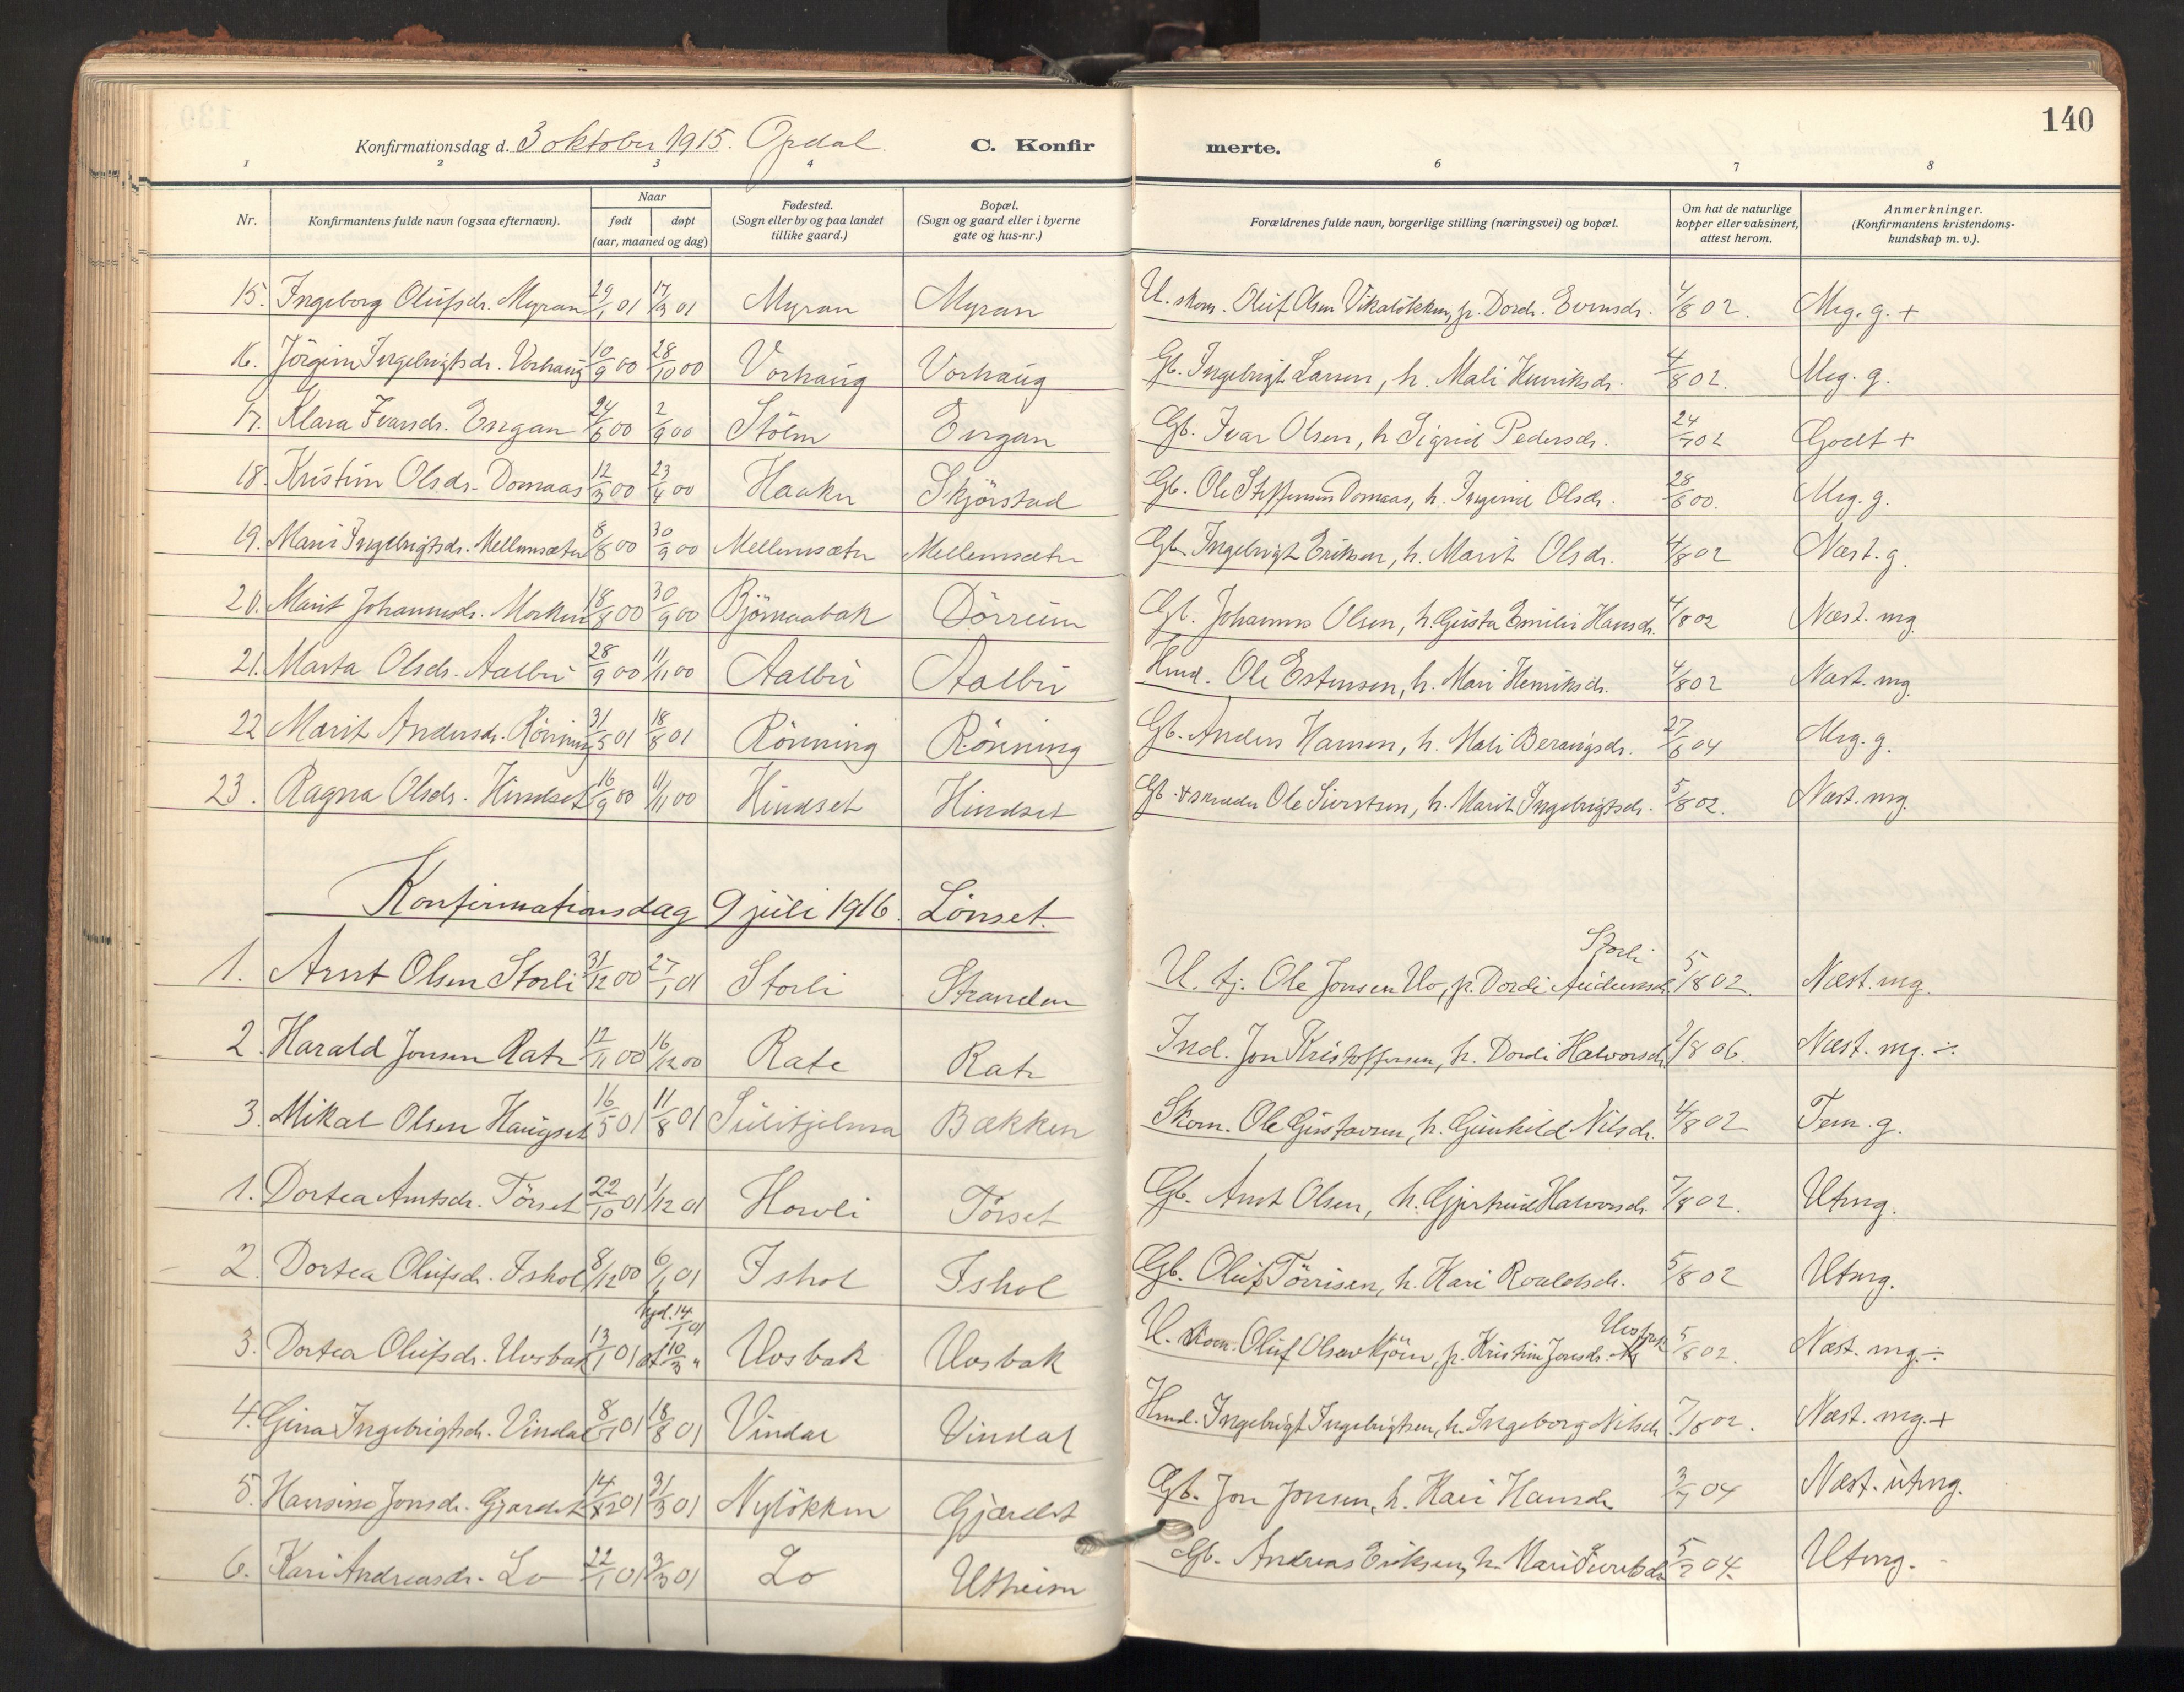 140
Konfirmationsdag d. 3 oktober 1915. Opdal. C. Konfirmerte.
1 2 3 4 6 7 8
Nr. Konfirmantens fulde navn (ogsaa efternavn). Naar født døpt (aar, maaned og dag) Fødested. (Sogn eller by og paa landet tillike gaard.) Bopæl. (Sogn og gaard eller i byerne gate og hus-nr.) Forældrenes fulde navn, borgerlige stilling (næringsvei) og bopæl. Om hat de naturlige kopper eller vaksinert, attest herom. Anmerkninger. (Konfirmantens kristendomskundskap m. v.).
15. Ingeborg Olufsdr. Myran 29/1 01 17/3 01 Myran Myran U. skom. Oluf Olsen Vikaløkken, p. Dordi Evensdr. /8 02. Meg. g. +
16. Jörgine Ingebrigtsdr. Vorhaug 10/9 00 28/10 00 Vorhaug Vorhaug Gb. Ingebrigt Larsen, h. Mali Henriksdr. 4/8 02. Meg. g.
17. Klara Ivarsdr. Engan 24/6 00 2/9 00 Stölen Engan Gb. Ivar Olsen, h. Sigrid Pedersdr. 24/7 02 Godt +
18. Kristine Olsdr. Domaas 12/3 00 23/4 00 Haaker Skjörstad Gb. Ole Steffensen Domaas, h. Ingerid Olsdr. 28/6 00. Meg. g.
19. Mari Ingebrigtsdr. Mellemsæter 8/8 00 30/9 00 Mellemsæter Mellemsæter Gb. Ingebrigt Eriksen, h. Marit Olsdr. 4/8 02 Næst. g.
20. Marit Johannesdr. Morken 18/8 00 30/9 00 Björnaabak Dörrem Gb. Johannes Olsen, h. Gusta Emilie Hansdr. 4/8 02 Næst. mg.
21. Marta Olsdr. Aalbu 28/9 00 11/11 00 Aalbu Aalbu Hmd. Ole Estensen, h. Mari Henriksdr. 4/8 02 Næst. mg.
22 Marit Andersdr. Rönning 31/5 01 18/8 01 Rönning Rönning Gb. Anders Hansen, h. Mali Berauigsdr. 27/6 04 Meg. g.
23. Ragna Olsdr. Hindset 16/9 00 11/11 00 Hindset Hindset Gb. + smeder Ole Sivertsen, h. Marit Ingebrigtsdr. 5/8 02. Næst. mg.
Konfirmationsdag 9 juli 1916. Lönset.
1. Arnt Olsen Storli 31/12 00 27/1 01 Storli Stranden U. tj. Ole Jonsen Uv, p. Dordi Audunsdr. Storli 5/8 02. Næst. mg.
2. Harald Jonsen Rate 12/11 00 16/12 00 Rate Rate Ind. Jon Kristoffersen, h. Dordi Halvorsdr. /8 06. Næst. mg. ÷
3. Mikal Olsen Haugset 16/5 01 11/8 01 Sulitjelma Bækken Skom. Ole Gustavsen, h. Gunhild Nilsdr. 4/8 02 Tem. g.
1. Dortea Arntsdr. Törset 22/10 01 1/12 01 Horvli Törset Gb. Arnt Olsen, h. Gjertrud Halvorsdr. 7/8 02. Utmg.
2. Dortea Olufsdr. Ishol 8/12 00 6/1 01 Ishol Ishol Gb. Oluf Törrisen, h. Kari Roaldsdr. 5/8 02 Utmg.
3. Dortea Olufsdr. Uvsbak 13/1 01 hjd. 14/1 01 st. 10/3 " Uvsbak Uvsbak U. skom. Oluf Olsen Kjören, p. Kristine Jonsdr. Uvsbak 5/8 02. Næst. mg. ÷
4. Gina Ingebrigtsdr. Vindal 8/7 01 18/8 01 Vindal Vindal Hmd. Ingebrigt Ingebrigtsen, h. Ingeborg Nilsdr. 7/8 02. Næst. mg. +
5. Hansine Jonsdr. Gjærdet 14/2 01 31/3 01 Nylökken Gjærdet Gb. Jon Jonsen, h. Kari Hansdr. 3/7 04 Næst. utmg.
6. Kari Andreasdr. Lo 22/1 01 3/3 01 Lo Utheim Gb. Andreas Eriksen, h. Mari Sivertsdr. 5/7 04. Utmg.